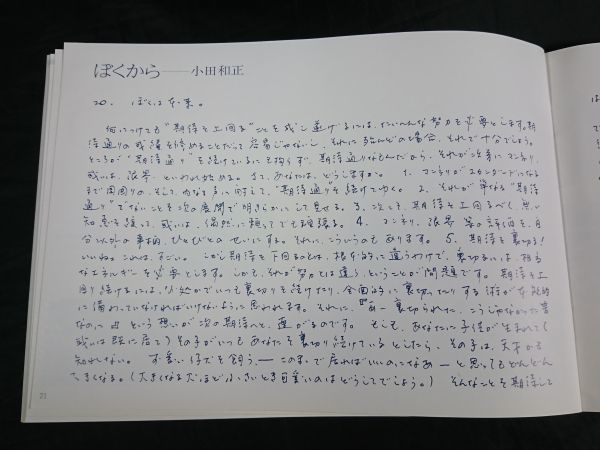 ぼくから――小田和正
20. ぼくは未来。
何につけても"期待を上回る"ことを成し遂げるには、たいへんな努力を必要とします。期
待通りの成績を修めることだって容易じゃないし、それに殆んどの場合、それで十分でしょう。
ところが"期待通り"を続けているにも拘らず、期待通りなもんだから、それが次第にマンネリ、
或いは、限界、といわれ始める。さて、あなたは、どうしますか。 1. マンネリがスタンダードになる
まで周囲の、そして内なる声に対して、"期待通り"を続けてゆく。 2. それが単なる"期待
通り"でないことを次の展開で明らかにして見せる。 3. 次こそ、期待を上回るべく、無い
知恵を絞って、或いは、偶然に頼ってでも頑張る。 4. マンネリ、限界 等の評価を、自
分以外の事柄、ひとびとのせいにする。それに、こういうのもあります。 5. 期待を裏切る!
いいね。これは、すごい。 しかし期待を下回るのとは、根本的に違うわけで、裏切るには、相当
なエネルギーを必要とします。しかも、それが努力とは違う、ということが問題です。 期待を上
回り続けるには、
に備わっていなければいけないように思われます。それに、『あー裏切られた、こうじゃなかった筈
なのに』という想いが次の期待へと、連がるのです。 そして、あなたに子供が生まれて(
或いは既に居て)その子がいつもあなたを裏切り続けているとしたら、その子は、天才かも
知れない。 可愛い仔犬を飼う、――このままで居ればいいのになあ――と思ってもどんどん
大きくなる。(大きくなる犬ほど小さいとき可愛いのはどうしてでしょう。) そんなことを期待して
21